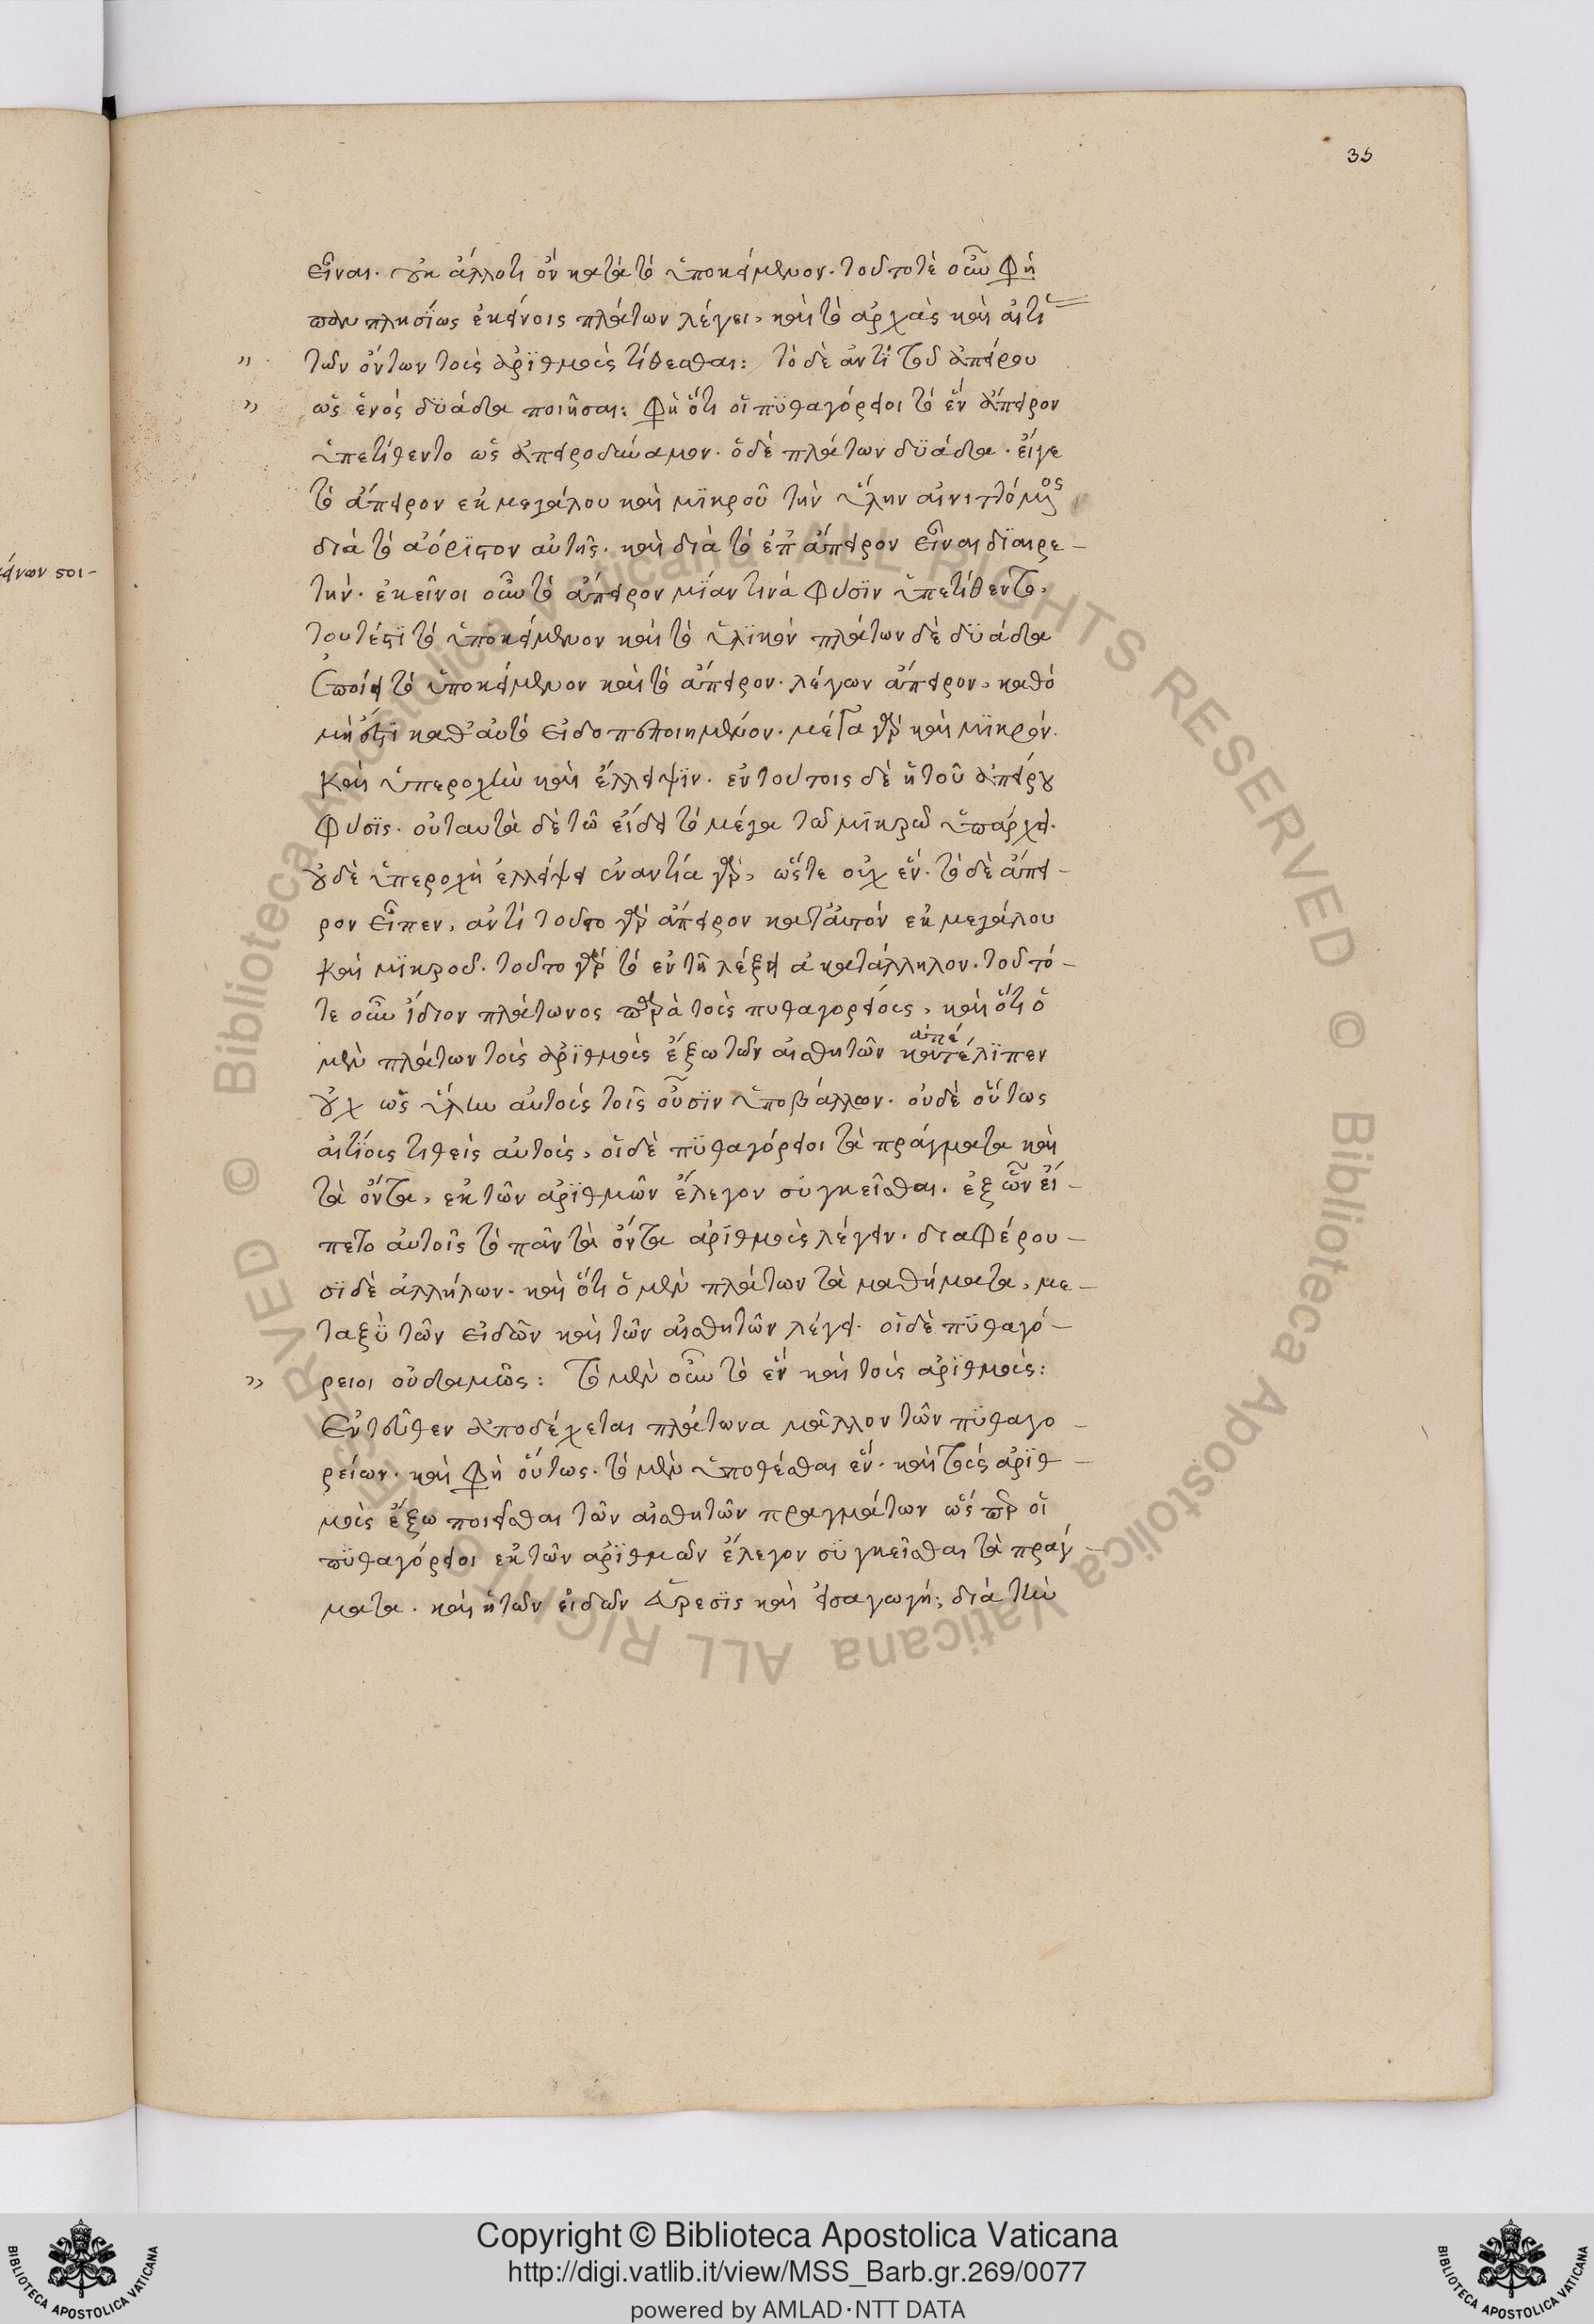 35
εἶναι. οὐκ ἄλλό τι ὂν κατὰ τὸ ὑποκείμενον. τοῦτό τε οὖν φη
παραπλησίως ἐκείνοις πλάτων λέγει, καὶ τὸ ἀρχὰς καὶ αἰτί
τῶν ὄντων τοὺς ἀρϊθμοὺς τίθεσθαι: τὸ δὲ ἀντὶ τοῦ ἀπείρου
ὡς ἑνὸς δϋάδα ποιῆσαι: φη ὅτι οἱ πϋθαγόρειοι τὸ ἓν ἄπειρον
ὑπετίθεντο ὡς ἀπειροδύναμον. ὁ δὲ πλάτων δϋάδα. εἴγε
τὸ ἄπειρον ἐκ μεγάλου καὶ μϊκροῦ τὴν ὕλην αἰνιττόμενος
διὰ τὸ ἀόρϊστον αὐτῆς. καὶ διὰ τὸ ἐπ' ἄπειρον εἶναι δϊαιρε-
τήν. ἐκεῖνοι οὖν τὸ ἄπειρον μΐαν τινὰ φύσϊν ὑπετίθεντο,
τουτέστϊ τὸ ὑποκείμενον καὶ τὸ ὑλϊκόν πλάτων δὲ δϋάδα
ἐποίει τὸ ὑποκείμενον καὶ τὸ ἄπειρον. λέγων ἄπειρον, καθὸ
μή ἐστϊ καθ' αὑτὸ εἰδοπεποιημένον. μέγα γὰρ καὶ μϊκρόν.
καὶ ὑπεροχὴν καὶ ἔλλειψϊν. ἐν τούτοις δὲ ἡ τοῦ ἀπείρου
φύσϊς. οὐ ταυτὰ δὲ τῶ εἴδει τὸ μέγα τῶ μϊκρῶ ὑπάρχει.
οὐδὲ ὑπεροχὴ ἐλλείψει ἐναντία γάρ, ὥστε οὐχ ἕν. τὸ δὲ ἄπει-
ρον εἶπεν, ἀντὶ τοῦτο γὰρ ἄπειρον κατ' αὐτὸν ἐκ μεγάλου
καὶ μϊκροῦ. τοῦτο γὰρ τὸ ἐν τῆ λέξει ἀκατάλληλον. τοῦτό-
τε οὖν ἴδιον πλάτωνος παρὰ τοὺς πυθαγορείους, καὶ ὅτι ὁ
μὲν πλάτων τοὺς ἀρϊθμοὺς ἔξω τῶν αἰσθητῶν κατέλϊπεν
ἀπέ
οὐχ ὡς ὕλην αὐτοὺς τοῖς οὖσϊν ὑποβάλλων. οὐδὲ οὕτως
αἰτίους τιθεὶς αὐτούς, οἱ δὲ πϋθαγόρειοι τὰ πράγματα καὶ
τὰ ὄντα, ἐκ τῶν ἀρϊθμῶν ἔλεγον συγκεῖσθαι. ἐξ ὧν εἵ-
πετο αὐτοῖς τὸ πᾶν τὰ ὄντα ἀρϊθμοὺς λέγειν. διαφέρου-
σϊ δὲ ἀλλήλων. καὶ ὅτι ὁ μὲν πλάτων τὰ μαθήματα, με-
ταξὺ τῶν εἰδῶν καὶ τῶν αἰσθητῶν λέγει. οἱ δὲ πϋθαγό-
ρειοι οὐδαμῶς: Τὸ μὲν οὖν τὸ ἓν καὶ τοὺς ἀρϊθμούς:
Ἐντεῦθεν ἀποδέχεται πλάτωνα μᾶλλον τῶν πϋθαγο-
ρείων. καὶ φη οὕτως. τὸ μὲν ὑποθέσθαι ἕν. καὶ τοὺς ἀρϊθ-
μοὺς ἔξω ποιεῖσθαι τῶν αἰσθητῶν πραγμάτων ὥσπερ οἱ
πϋθαγόρειοι ἐκ τῶν ἀρϊθμῶν ἔλεγον συγκεῖσθαι τὰ πράγ-
ματα. καὶ ἡ τῶν εἰδῶν εὕρεσϊς καὶ εἰσαγωγή, διὰ τὴν
Copyright © Biblioteca Apostolica Vaticana
http://digi.vatlib.it/view/MSS_Barb.gr.269/0077
powered by AMLAD·NTT DATA
© Biblioteca Apostolica Vaticana ALL RIGHTS RESERVED
© Biblioteca Apostolica Vaticana ALL RIGHTS RESERVED
BIBLIOTECA APOSTOLICA VATICANA
BIBLIOTECA APOSTOLICA VATICANA